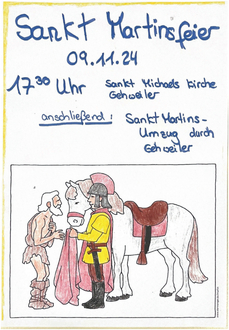 Sankt Martinsfeier
09.11.24
17³⁰ Uhr Sankt Michaels Kirche
Gehweiler
anschließend: Sankt Martins-
Umzug durch
Gehweiler